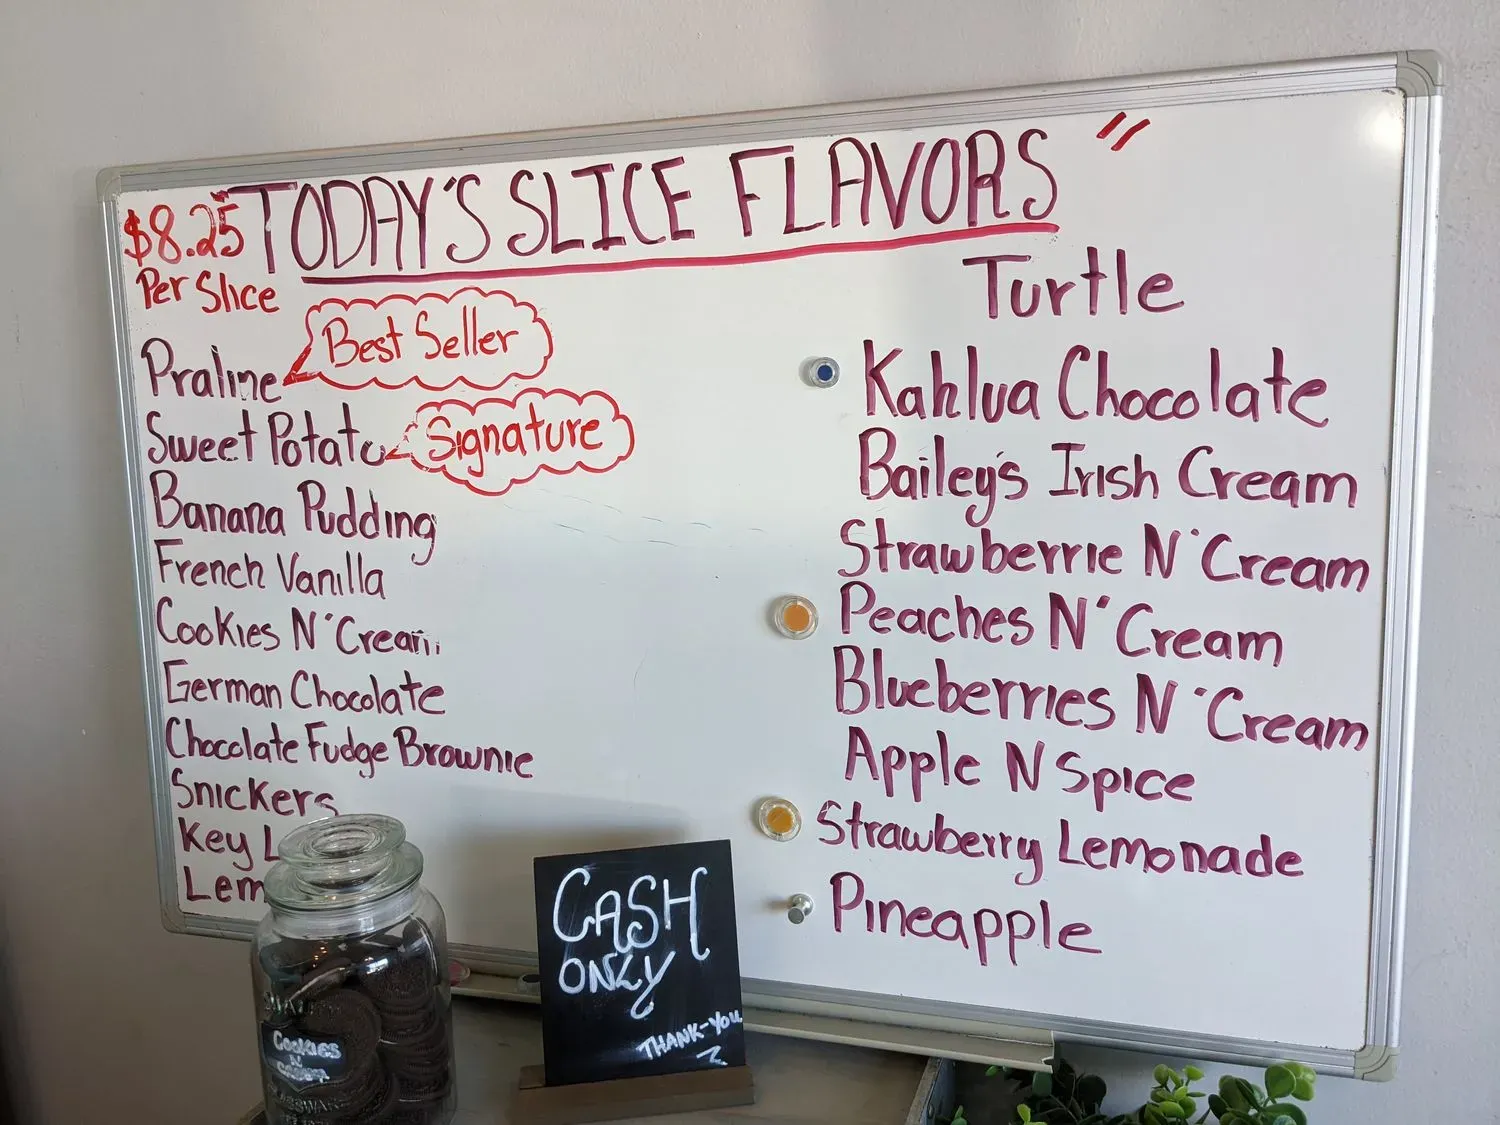 TODAY'S SLICE FLAVORS "
$8.25
Per Slice
Praline
Best Seller
Sweet Potato
Signature
Banana Pudding
French Vanilla
Cookies N' Cream
German Chocolate
Chocolate Fudge Brownie
Snickers
Key L
Lem
Turtle
Kahlua Chocolate
Bailey's Irish Cream
Strawberrie N' Cream
Peaches N' Cream
Blueberries N' Cream
Apple N Spice
Strawberry Lemonade
Pineapple
CASH
ONLY
THANK-YOU
COOKIES
N